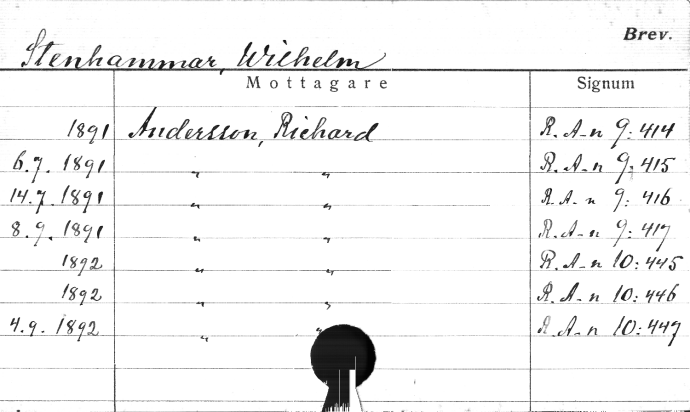 Brev.
Stenhammar, Wilhelm
Mottagare Signum
1891 Andersson, Richard R. A-n 9: 414
6.7. 1891 " " R. A-n 9: 415
14.7. 1891 " " R. A- n 9: 416
8.9. 1891 " " R. A- n 9: 417
1892 " " R. A- n 10: 445
1892 " " R. A- n 10: 446
4.9. 1892 " " R. A-n 10: 447